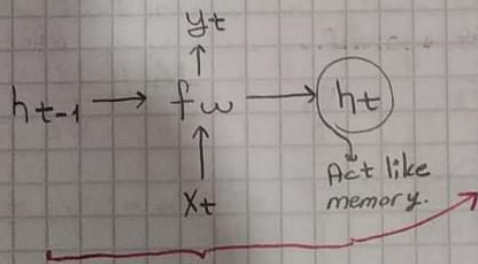 yt
ht-1 → fw → ht
xt
Act like
memory.